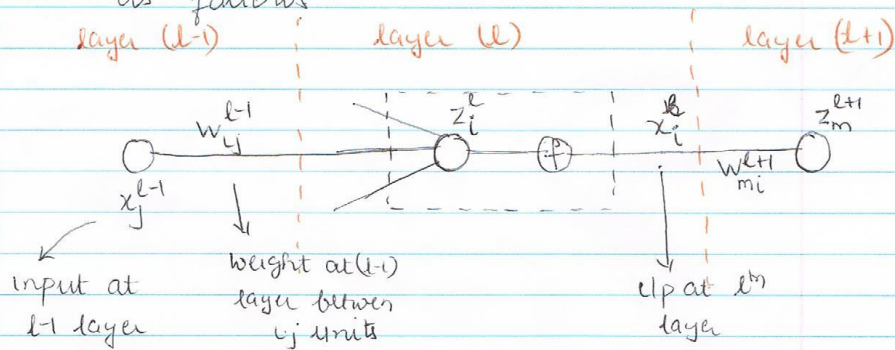 as follows
layer (l-1)
layer (l)
layer (l+1)
w_ij^l-1
z_i^l
x_i^l
z_m^l+1
x_j^l-1
w_mi^l+1
input at
l-1 layer
weight at (l-1)
layer between
ij units
at lth
layer